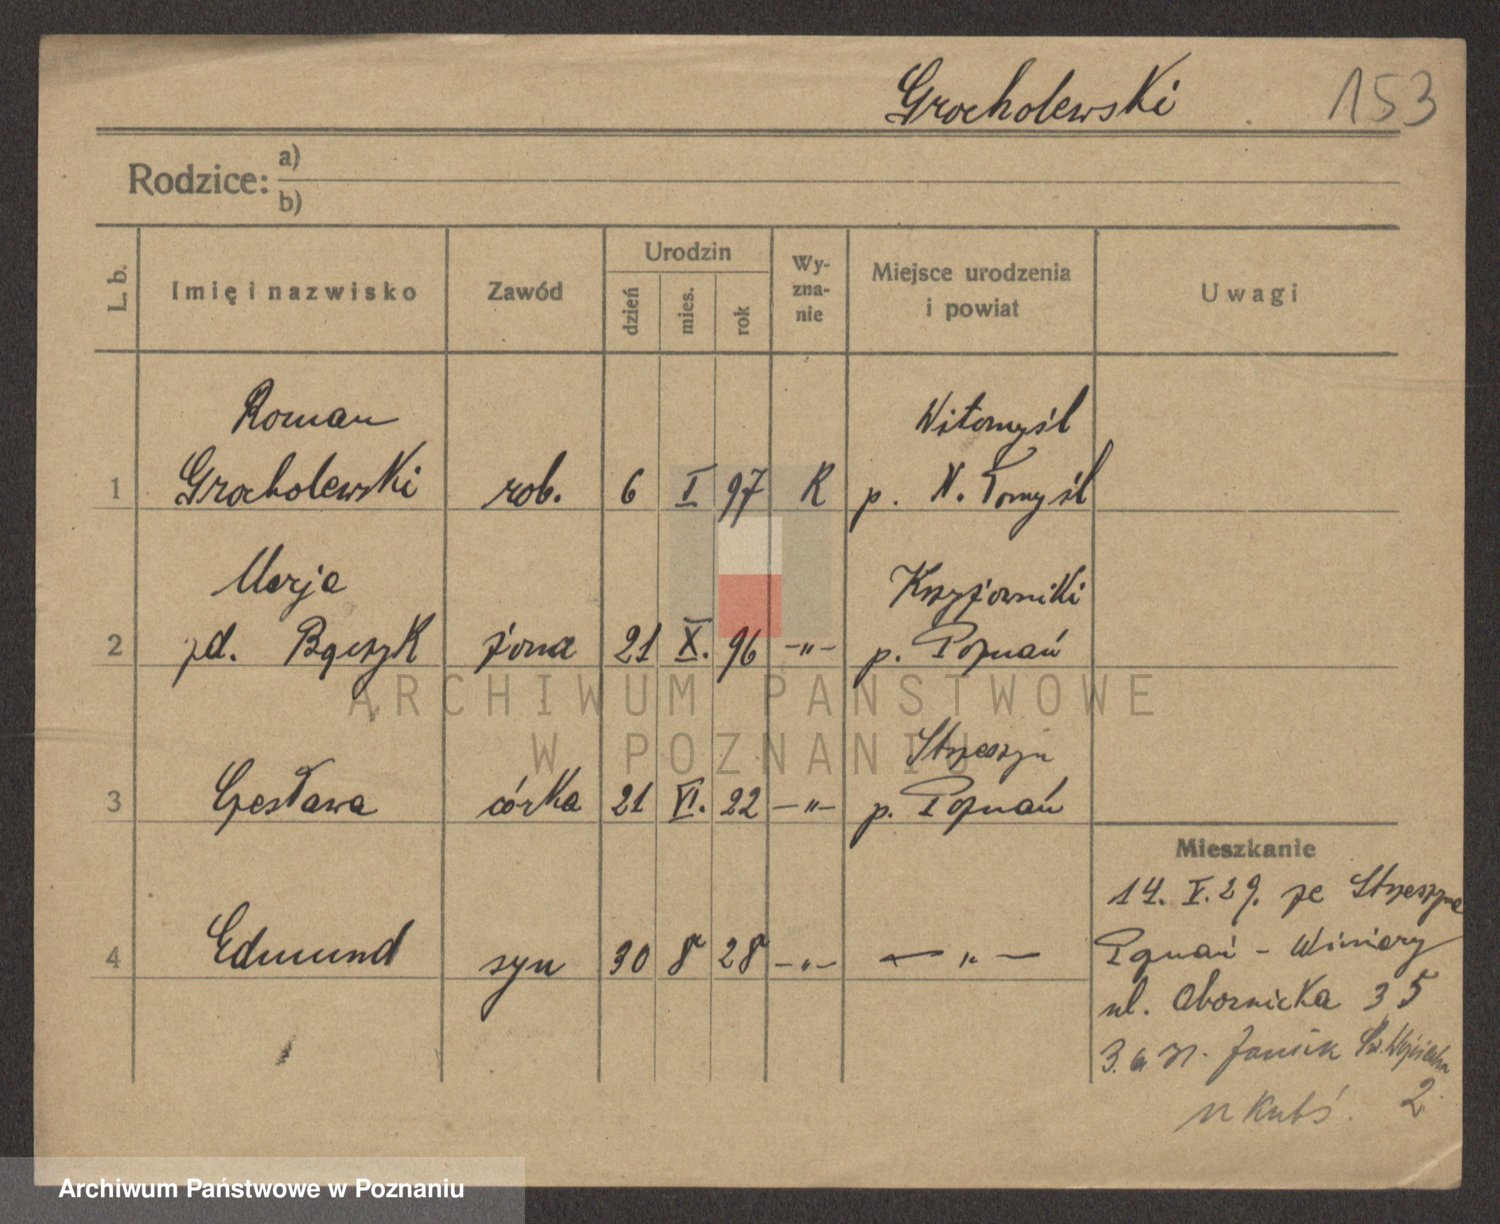 Grocholewski 153
Rodzice: a)
b)
L. b. Imię i nazwisko Zawód Urodzin dzień mies. rok Wy-zna-nie Miejsce urodzenia i powiat Uwagi
Roman Witomyśl
1 Grocholewski rob. 6 I 97 R p. N. Tomyśl
Marja Krzyżowniki
2 zd. Bączyk żona 21 X. 96 -"- p. Poznań
ARCHIWUM PAŃSTWOWE
W POZNANIU
Strzeszyn
3 Czesława córka 21 VI. 22 -"- p. Poznań
Mieszkanie
14. V. 29. ze Strzeszyna
4 Edmund syn 30 8 28 -"- -"-
Poznań - Winiary
ul. Obornicka 35
3. 6 31. Św. Wojciecha
2
Archiwum Państwowe w Poznaniu